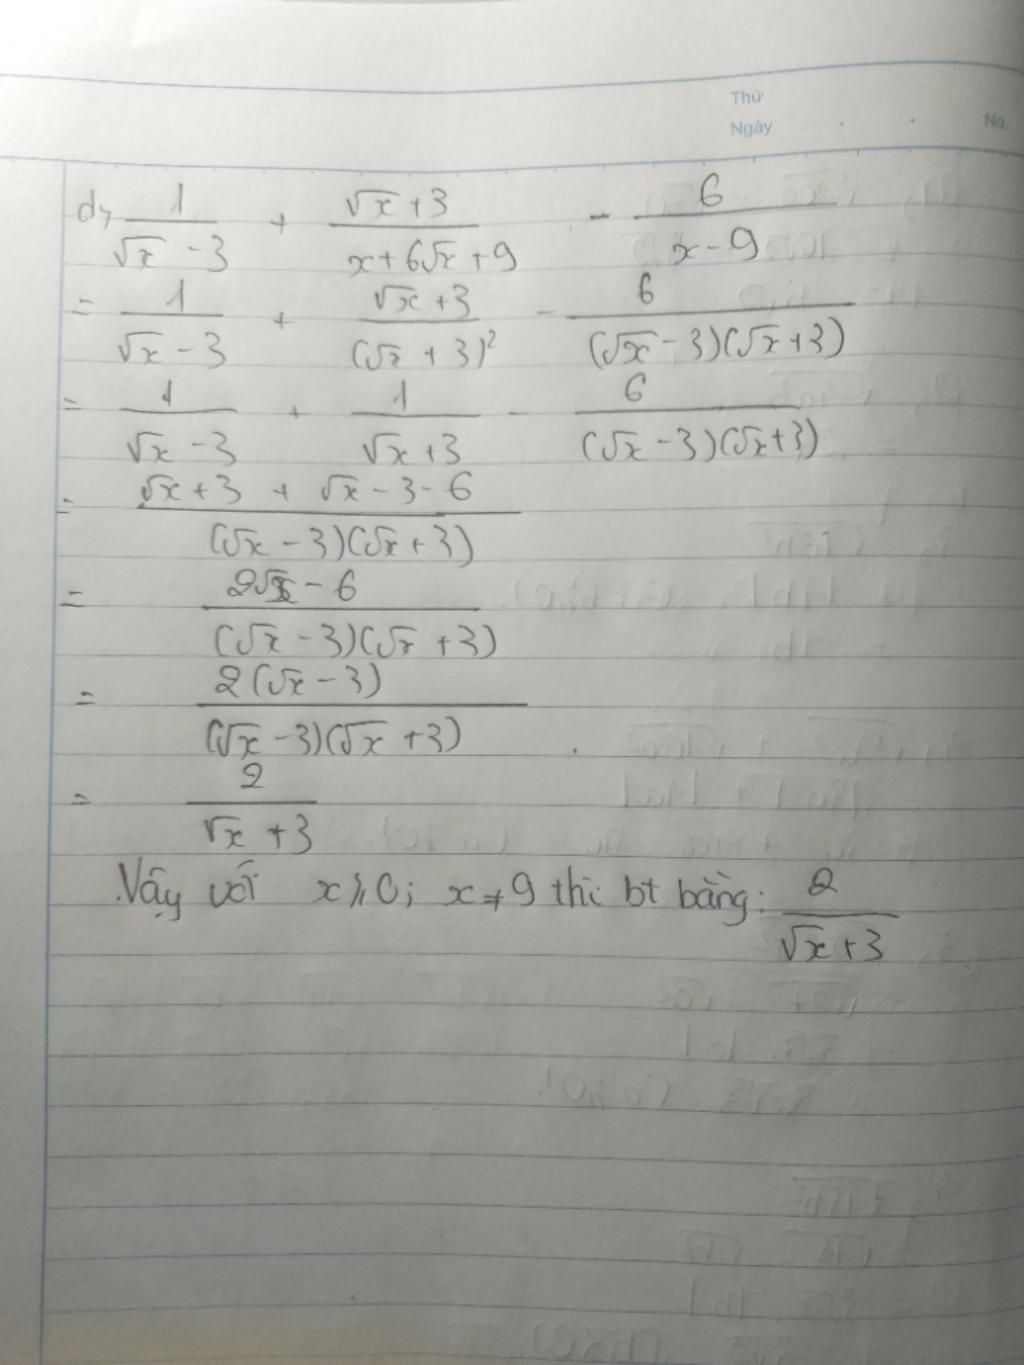 Thứ
Ngày
No.
d, 1/(√x - 3) + (√x + 3)/(x + 6√x + 9) - 6/(x - 9)
= 1/(√x - 3) + (√x + 3)/(√x + 3)² - 6/((√x - 3)(√x + 3))
= 1/(√x - 3) + 1/(√x + 3) - 6/((√x - 3)(√x + 3))
= (√x + 3 + √x - 3 - 6)/((√x - 3)(√x + 3))
= (2√x - 6)/((√x - 3)(√x + 3))
= 2(√x - 3)/((√x - 3)(√x + 3))
= 2/(√x + 3)
Vậy với x ⩾ 0; x ≠ 9 thì bt bằng: 2/(√x + 3)